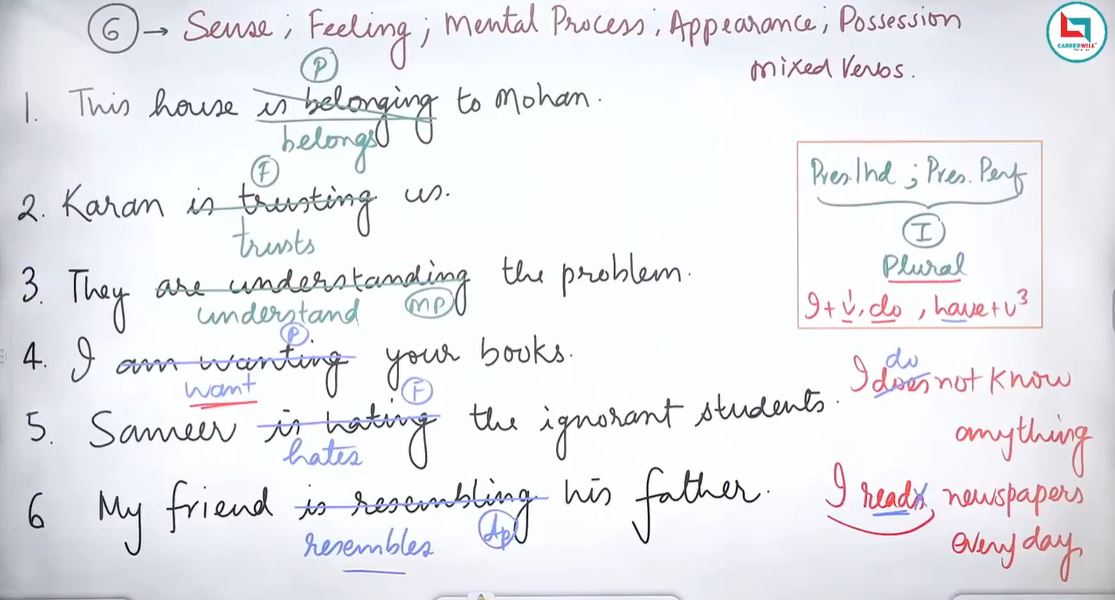 6 → Sense ; Feeling ; Mental Process ; Appearance ; Possession
mixed verbs.
CAREERWILL
P
1. This house is belonging to Mohan.
belongs
F
2. Karan is trusting us.
trusts
3. They are understanding the problem.
understand MP
P
4. I am wanting your books.
want
F
5. Sameer is hating the ignorant students.
hates
6 My friend is resembling his father.
resembles Ap
Pres. Ind ; Pres. Perf
I
Plural
I + v¹, do , have + v³
do
I does not know
anything
I reads newspapers
every day